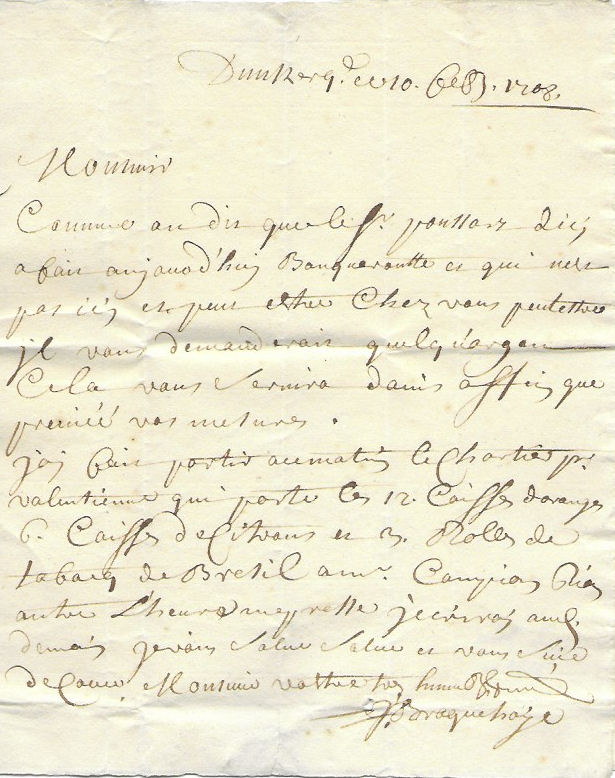 Dunkerq. ce 10. 1708.
Monsieur
Comme on dit que le Sr. poussart d'icy
a fait aujourd'huy Banqueroutte et qui nest
pas icy et peut estre Chez vous peutestre
jl vous demanderait quelq'argent
Cela vous servira davis affin que
preniés vos mesures.
jay fait partir ce matin le Chartier pr.
valentienne qui porte les 12. Caisses doranges
6. Caisses de Citrons et 3. Rolles de
tabacq de Bresil a mr. Campion Rien
autre L'heure me presse jecriray
demain je vous Salue et vous suis
de Coeur Monsieur vottre tres humb